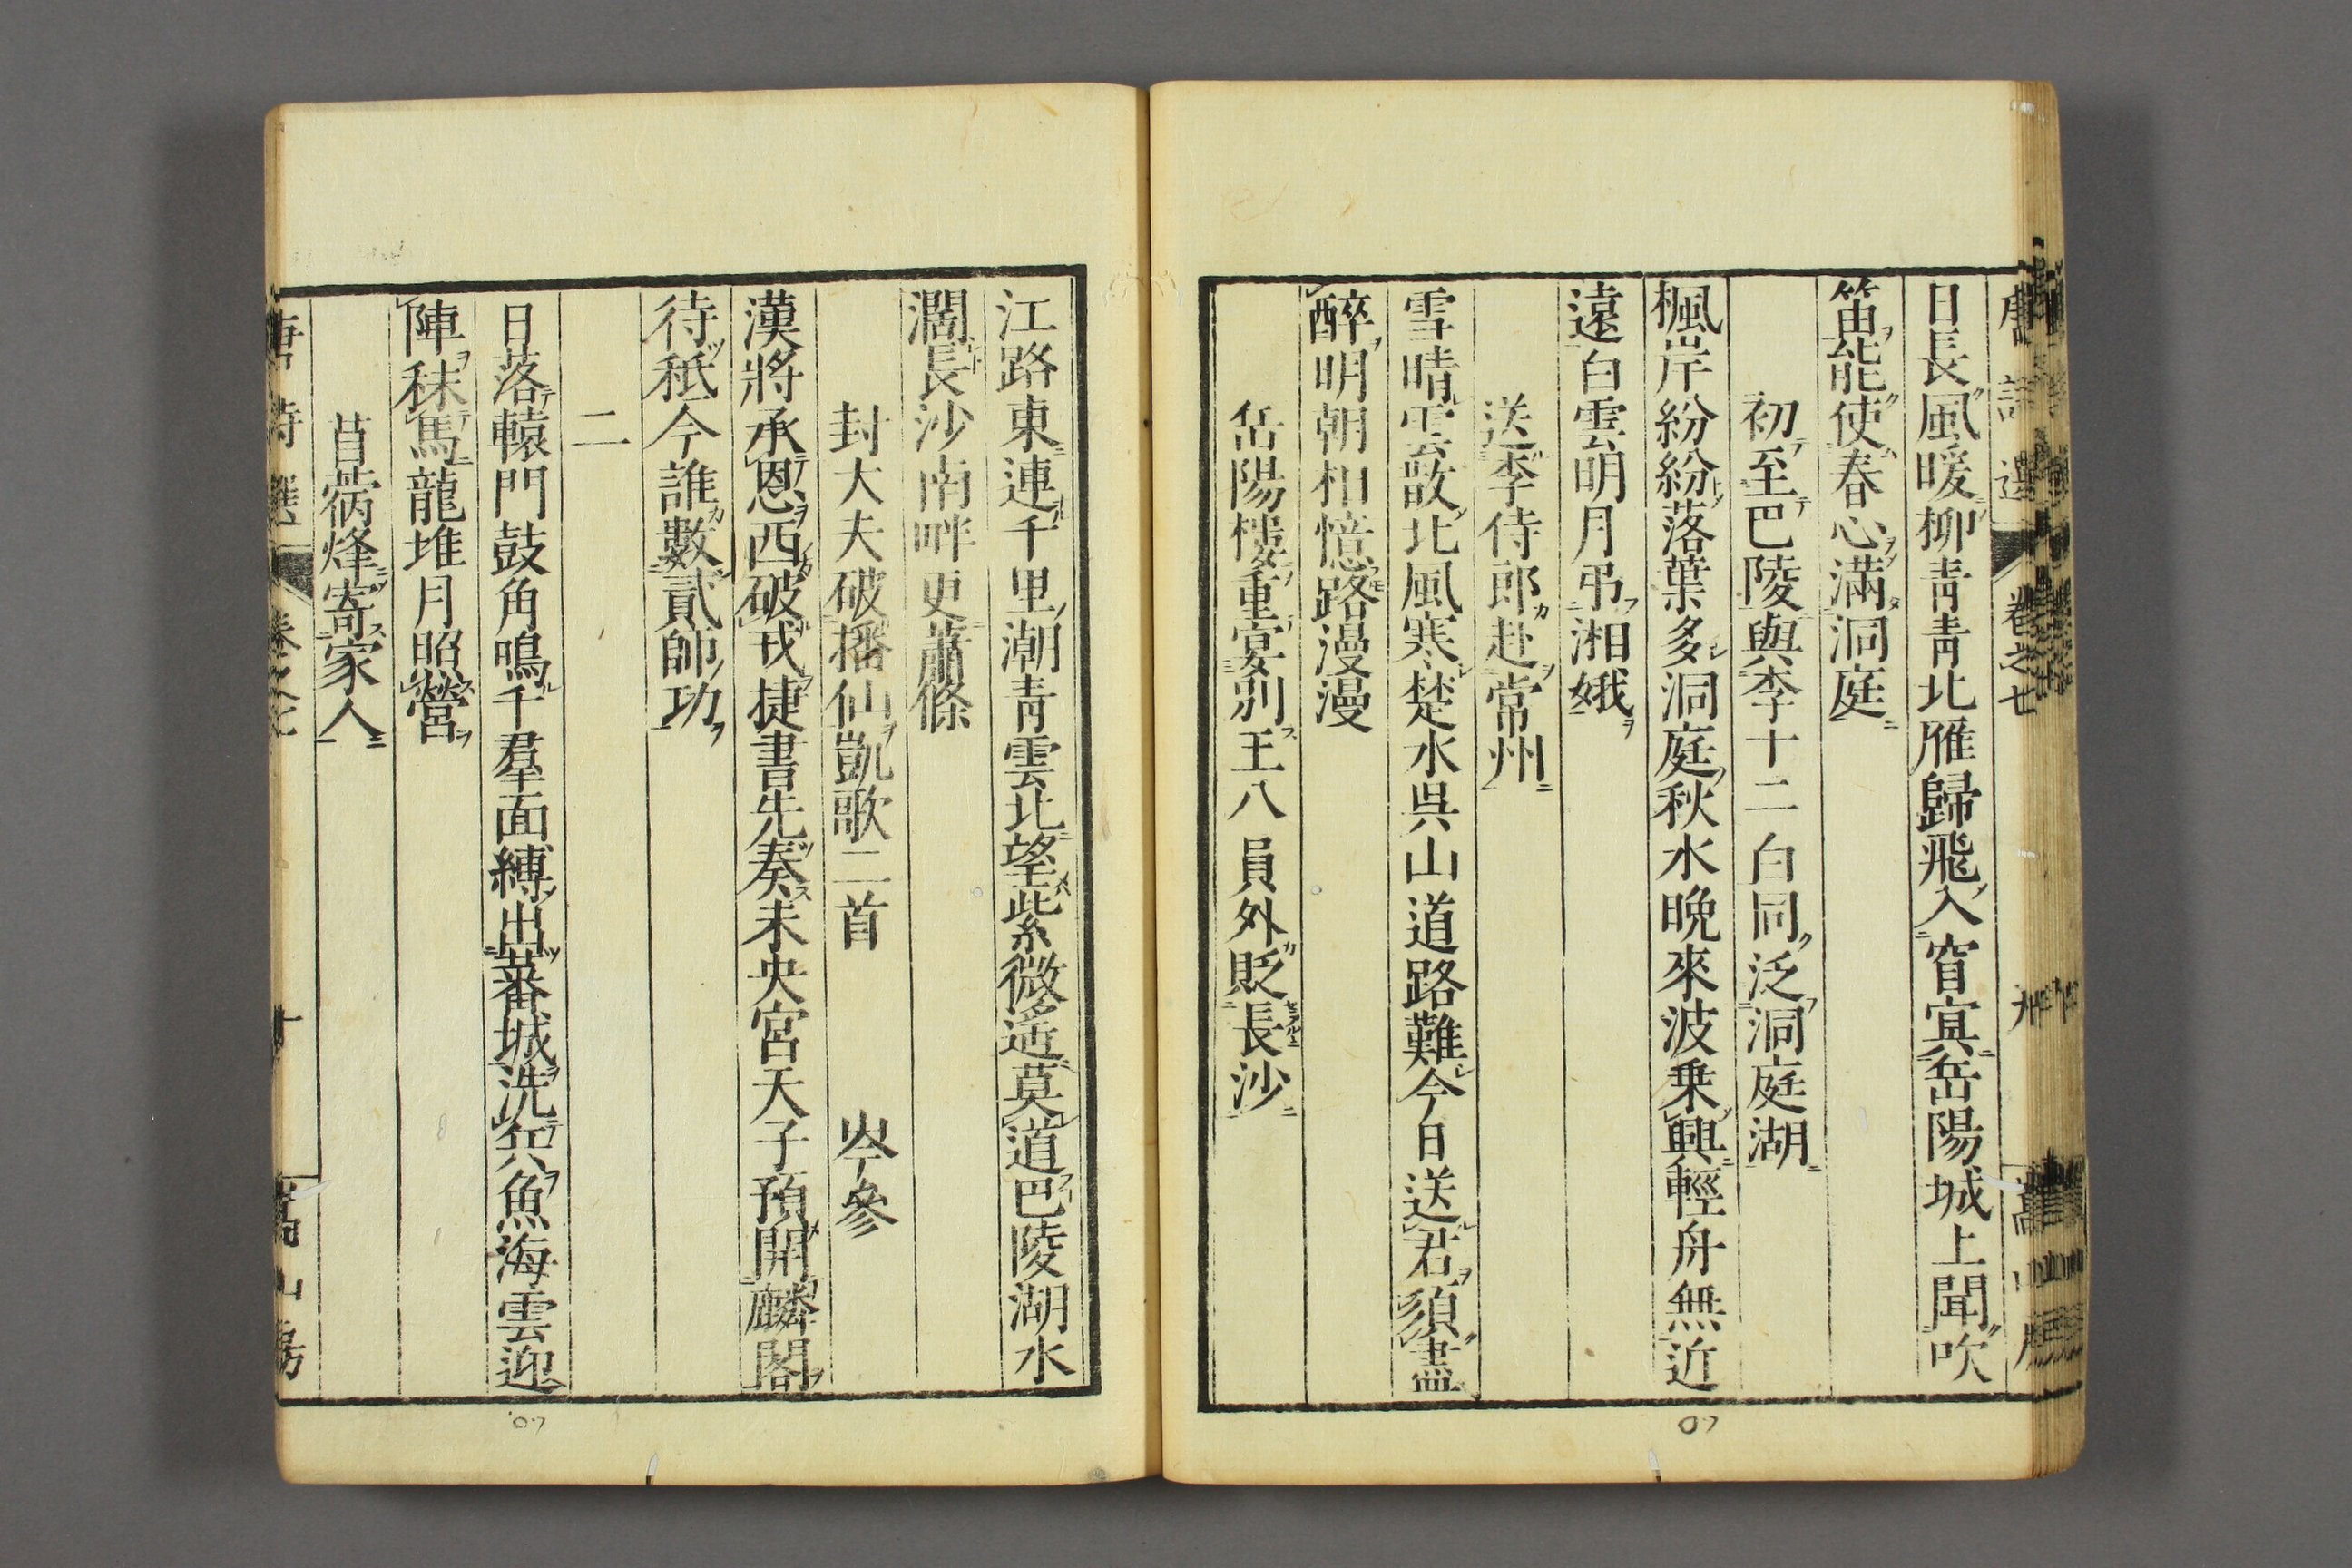 唐詩選 卷之七 九 嵩山房
日長風暖柳青青北雁歸飛入窅冥岳陽城上聞吹
笛能使春心滿洞庭
初至巴陵與李十二白同泛洞庭湖
楓岸紛紛落葉多洞庭秋水晚來波乗興輕舟無近
遠白雲明月弔湘娥
送李侍郎赴常州
雪晴雲散北風寒楚水吳山道路難今日送君須盡
醉明朝相憶路漫漫
岳陽樓重宴別王八員外貶長沙
江路東連千里潮青雲北望紫微遙莫道巴陵湖水
濶長沙南畔更蕭條
封大夫破播仙凱歌二首 岑參
漢將承恩西破戎捷書先奏未央宮天子預開麟閣
待秖今誰數貳師功
二
日落轅門鼓角鳴千羣面縛出蕃城洗兵魚海雲迎
陣秣馬龍堆月照營
苜蓿烽寄家人
唐詩選 卷之七 十 嵩山房